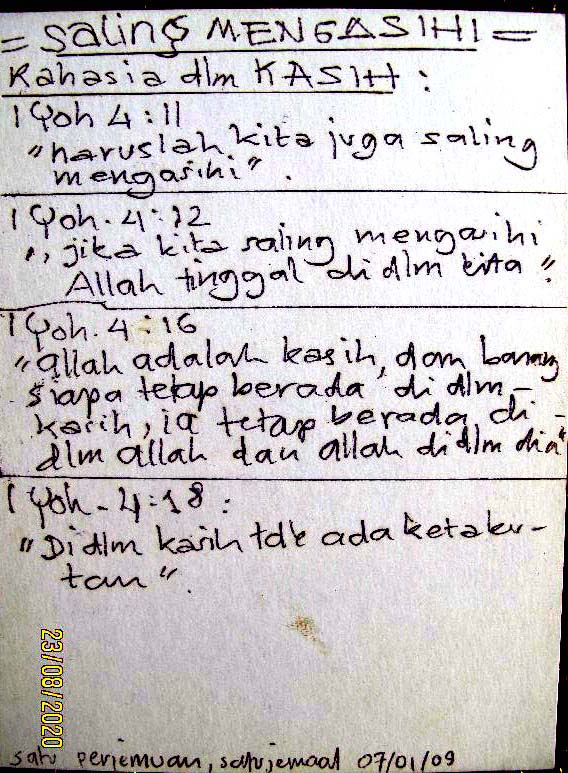 = saling MENGASIHI =
Rahasia dlm KASIH :
1 Yoh 4:11
"haruslah kita juga saling
mengasihi".
1 Yoh. 4:12
", jika kita saling mengasihi
Allah tinggal di dlm kita".
1 Yoh. 4:16
"allah adalah kasih, dan barang
siapa tetap berada di dlm-
kasih, ia tetap berada di-
dlm allah dan allah di dlm dia"
1 Yoh - 4:18 :
"Di dlm kasih tdk ada ketaku-
tan".
23/08/2020
satu perjemuan, satu jemaat 07/01/09